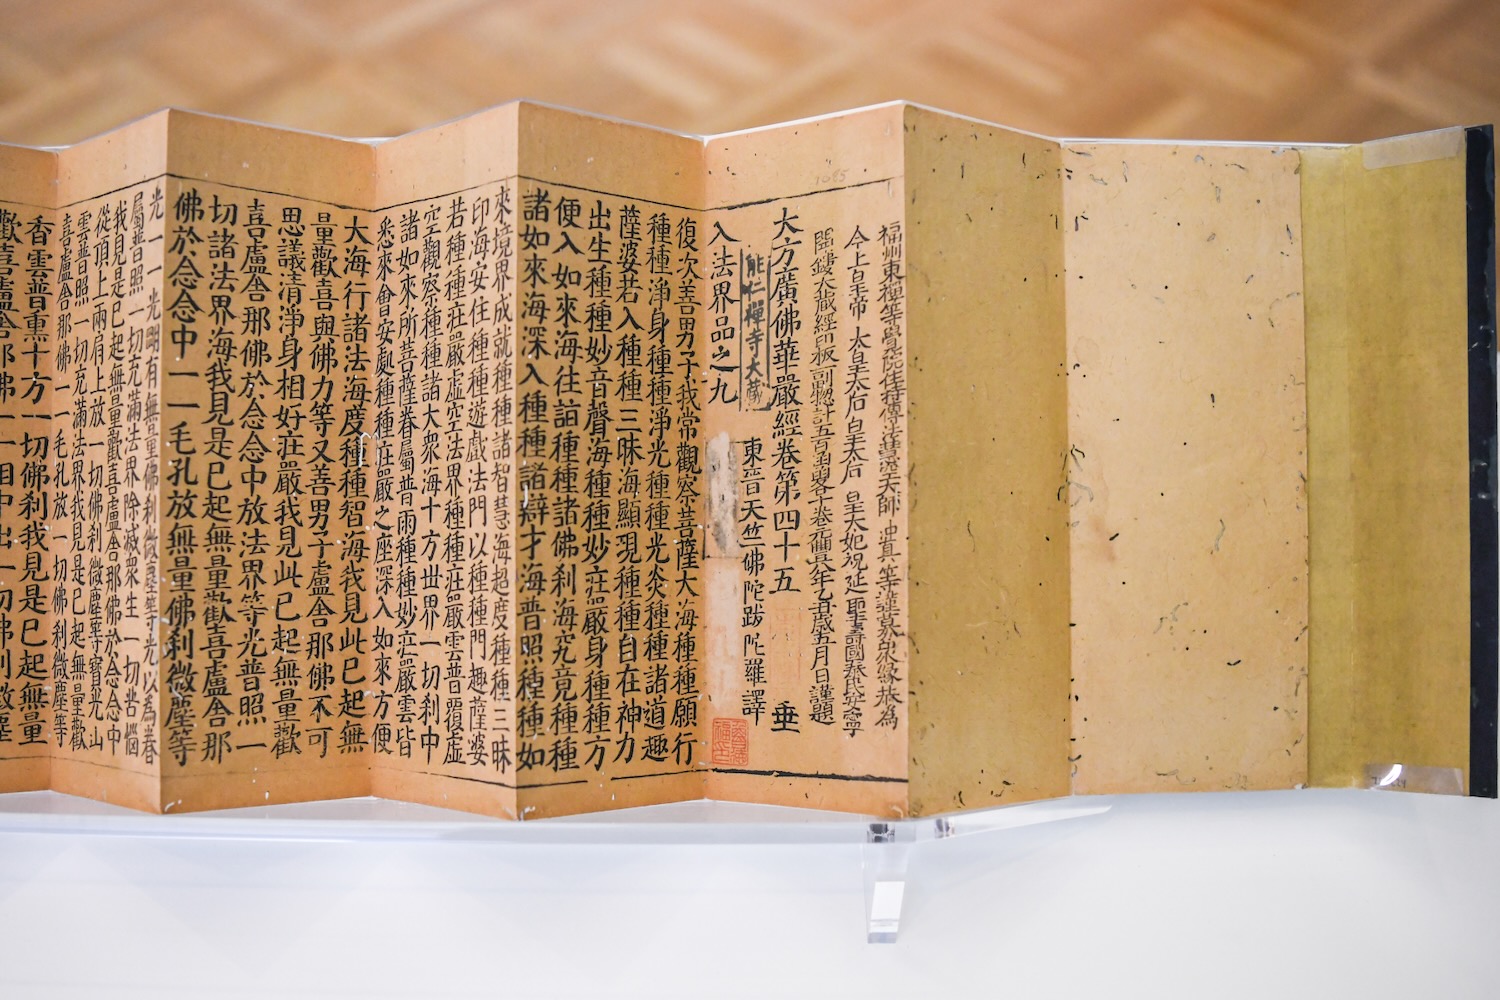 福州東禪等覺院住持傳法慧空大師沖真等謹募衆緣恭為
今上皇帝 太皇太后皇太后 皇太妃祝延聖壽國泰民安鏤
開鏤大藏經印板一副總計五百函畧十卷元豐八年乙丑歲五月日謹題
大方廣佛華嚴經卷第四十五 垂
能仁禪寺大藏
東晉天竺佛陀跋陀羅譯
入法界品之九
復次善男子我常觀察菩薩大海種種願行
種種淨身種種淨光種種光炎種種諸道趣
薩婆若入種種三昧海顯現種種自在神力
出生種種妙音聲海種種妙莊嚴身種種方
便入如來海住詣種種諸佛刹海究竟種種
諸如來海深入種種諸辯才海普照種種如
來境界成就種種諸智慧海超度種種三昧
印海安住種種遊戲法門以種種門趣薩婆
若種種莊嚴虛空法界種種莊嚴雲普覆虛
空觀察種種諸大衆海十方世界一切刹中
諸如來所菩薩眷屬普雨種種妙莊嚴雲皆
悉來會安處種種莊嚴之座深入如來方便
大海行諸法海度種種智海我見此已起無
量歡喜與佛力等又善男子盧舍那佛不可
思議清淨身相好莊嚴我見此已起無量歡
喜盧舍那佛於念念中放法界等光普照一
切諸法界海我見是已起無量歡喜盧舍那
佛於念念中一一毛孔放無量佛刹微塵等
光一一光明有無量佛刹微塵等光以為眷
屬普照一切充滿法界除滅衆生一切苦惱
我見是已起無量歡喜盧舍那佛於念念中
從頂上兩肩上放一切佛刹微塵等寶光山
雲普照一切充滿法界我見是已起無量歡
喜盧舍那佛一一毛孔放一切佛刹微塵等
香雲普熏十方一切佛刹我見是已起無量
歡喜盧舍那佛一一相中出一切佛刹微塵